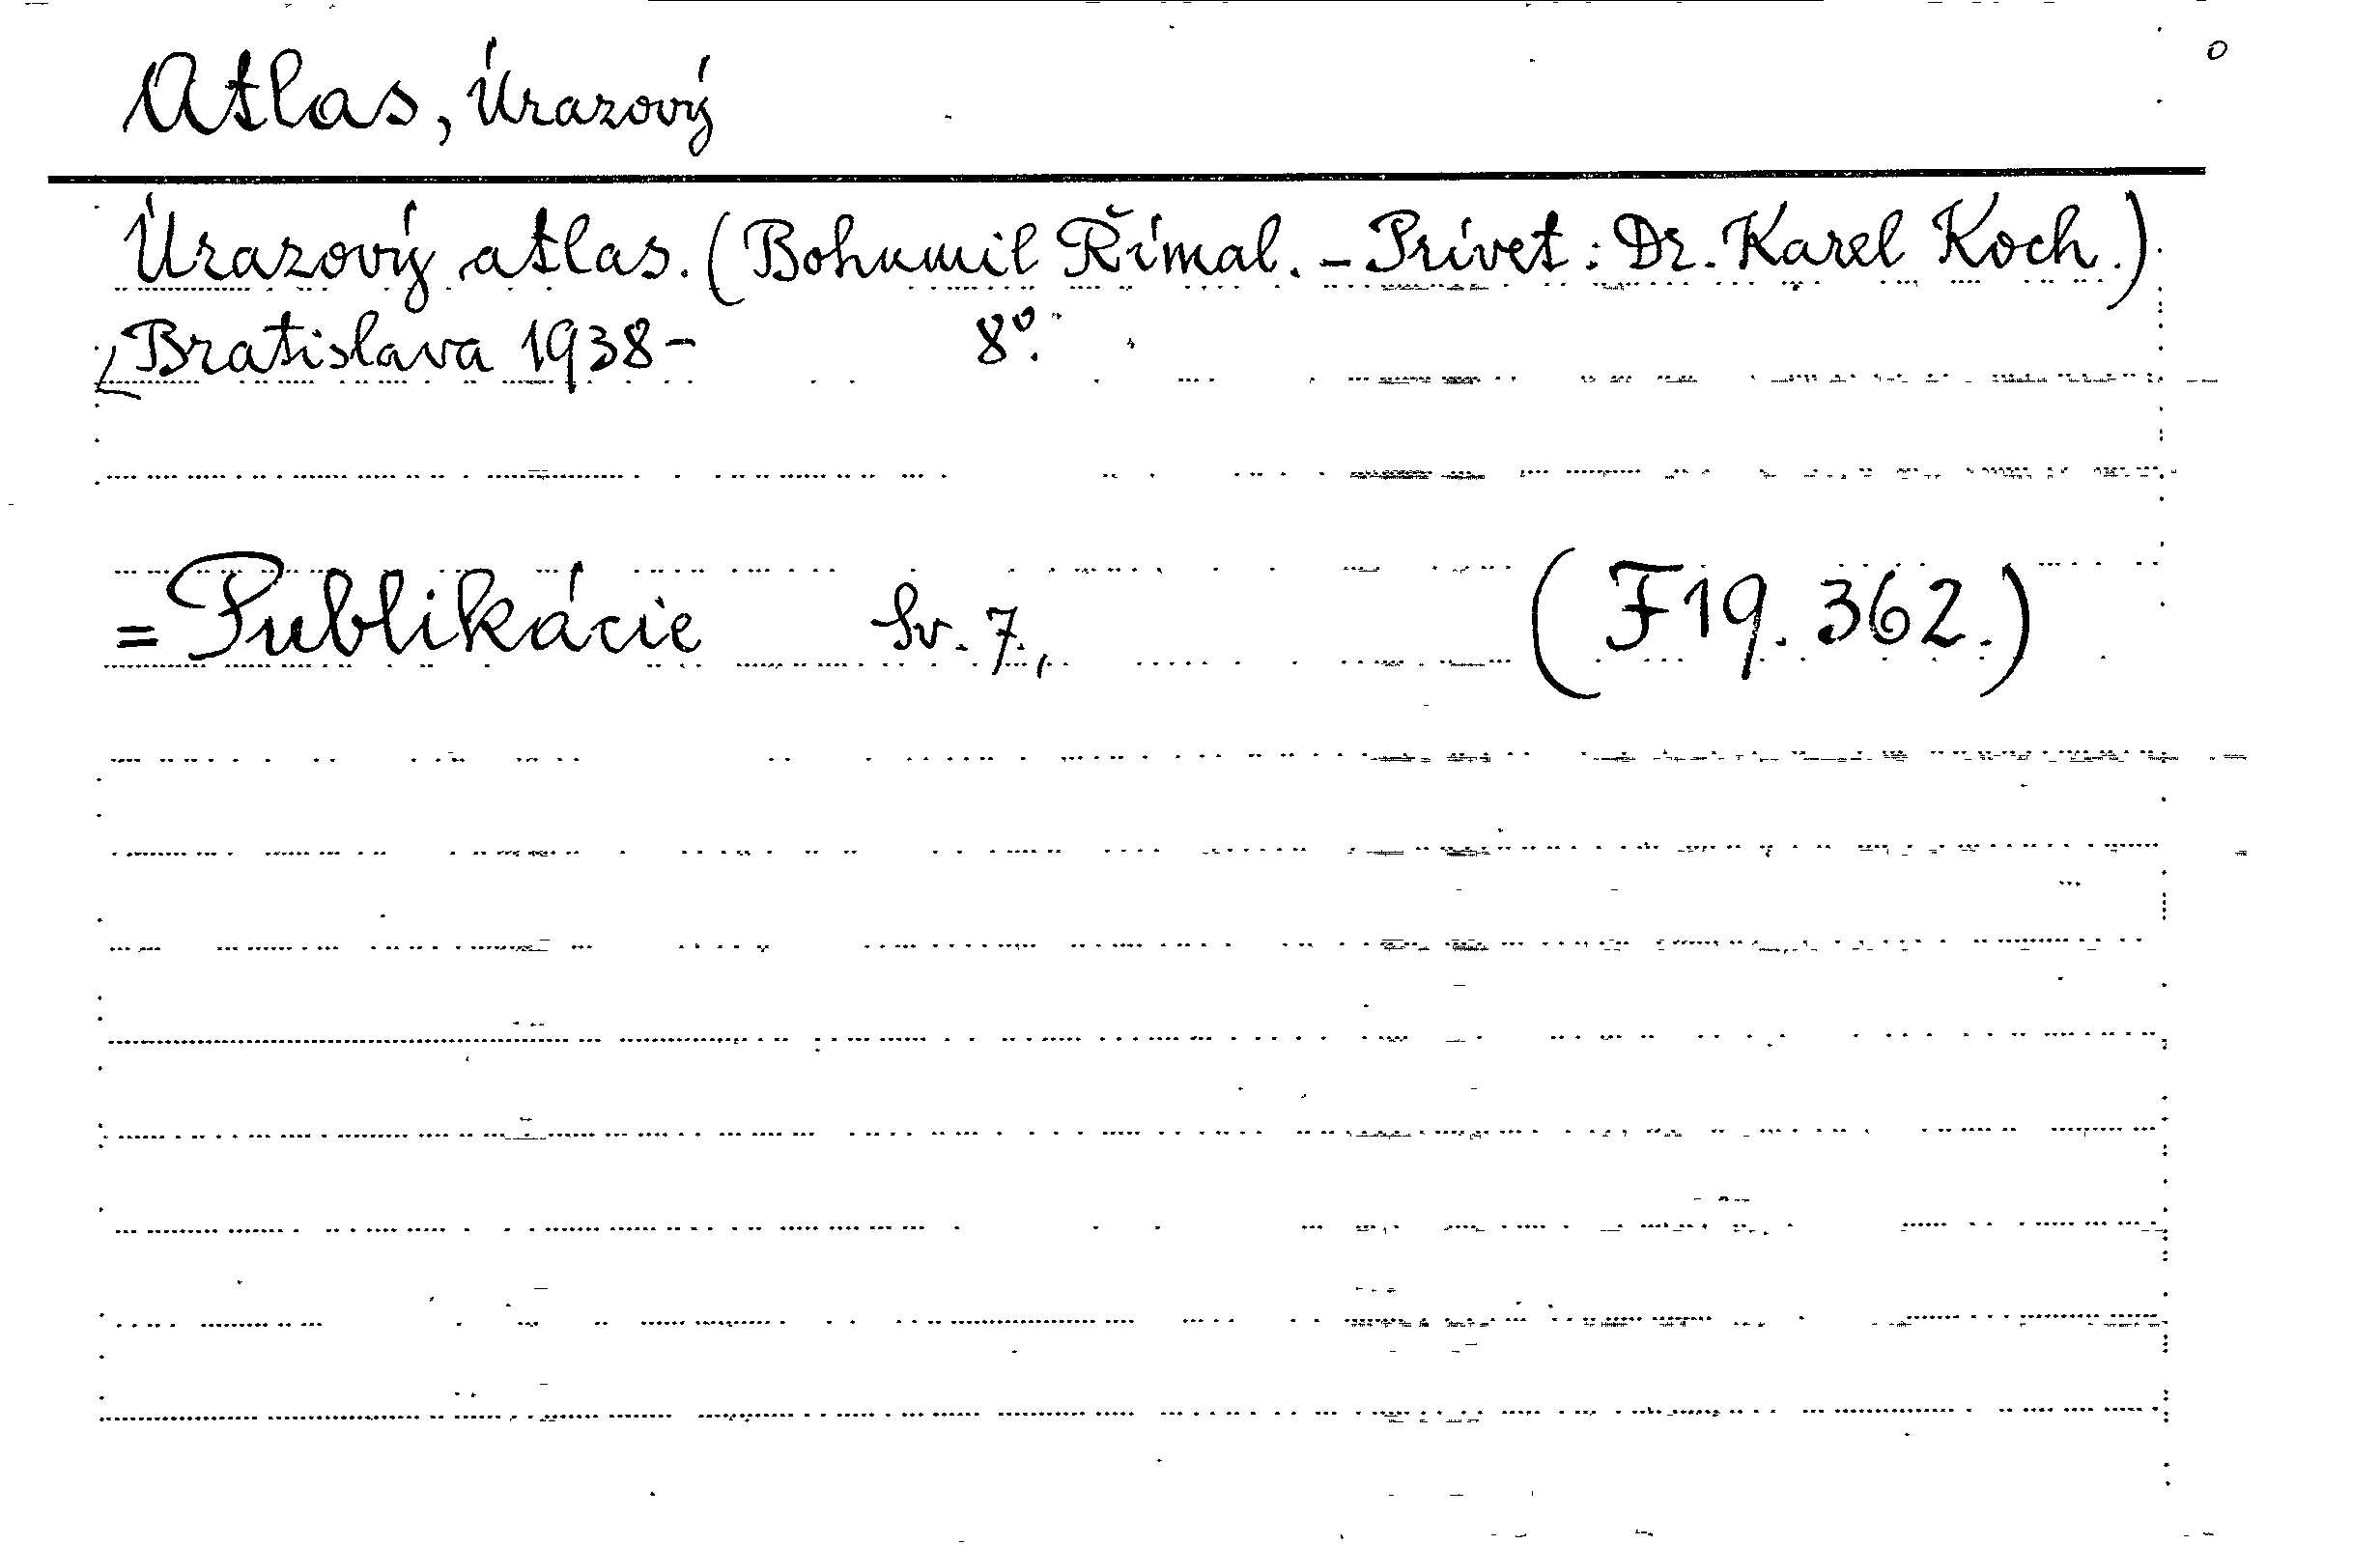 o
Atlas, Úrazový
Úrazový atlas. (Bohumil Římal. – Prívet: Dr. Karel Koch.)
Bratislava 1938- 8º.
= Publikácie Sv. 7., (F 19. 362.)